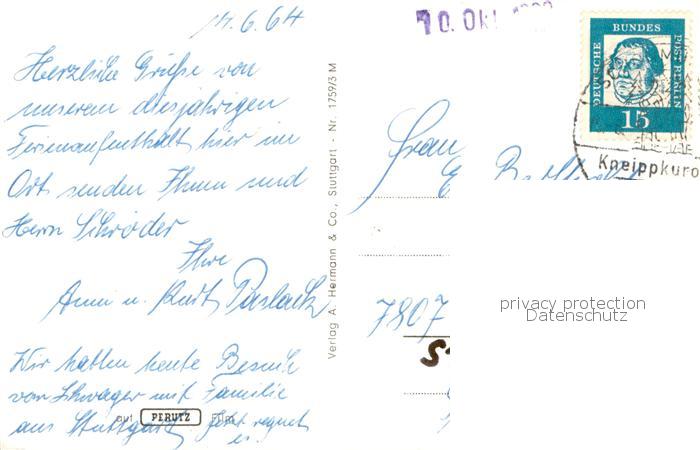 14.6.64
Herzliche Grüße von
unserem diesjährigen
Ferienaufenthalt hier im
Ort senden Ihnen und
Herrn Schröder
Ihre
Anni u. Kurt Paslack
Wir hatten heute Besuch
von Schwager mit Familie
aus Stuttgart jetzt regnet
es.
auf PERUTZ Film
Verlag A. Hermann & Co., Stuttgart - Nr. 1759/3 M
10. Okt.
DEUTSCHE BUNDES POST BERLIN
15
Kneippkuro
Frau
E.
7807
privacy protection
Datenschutz